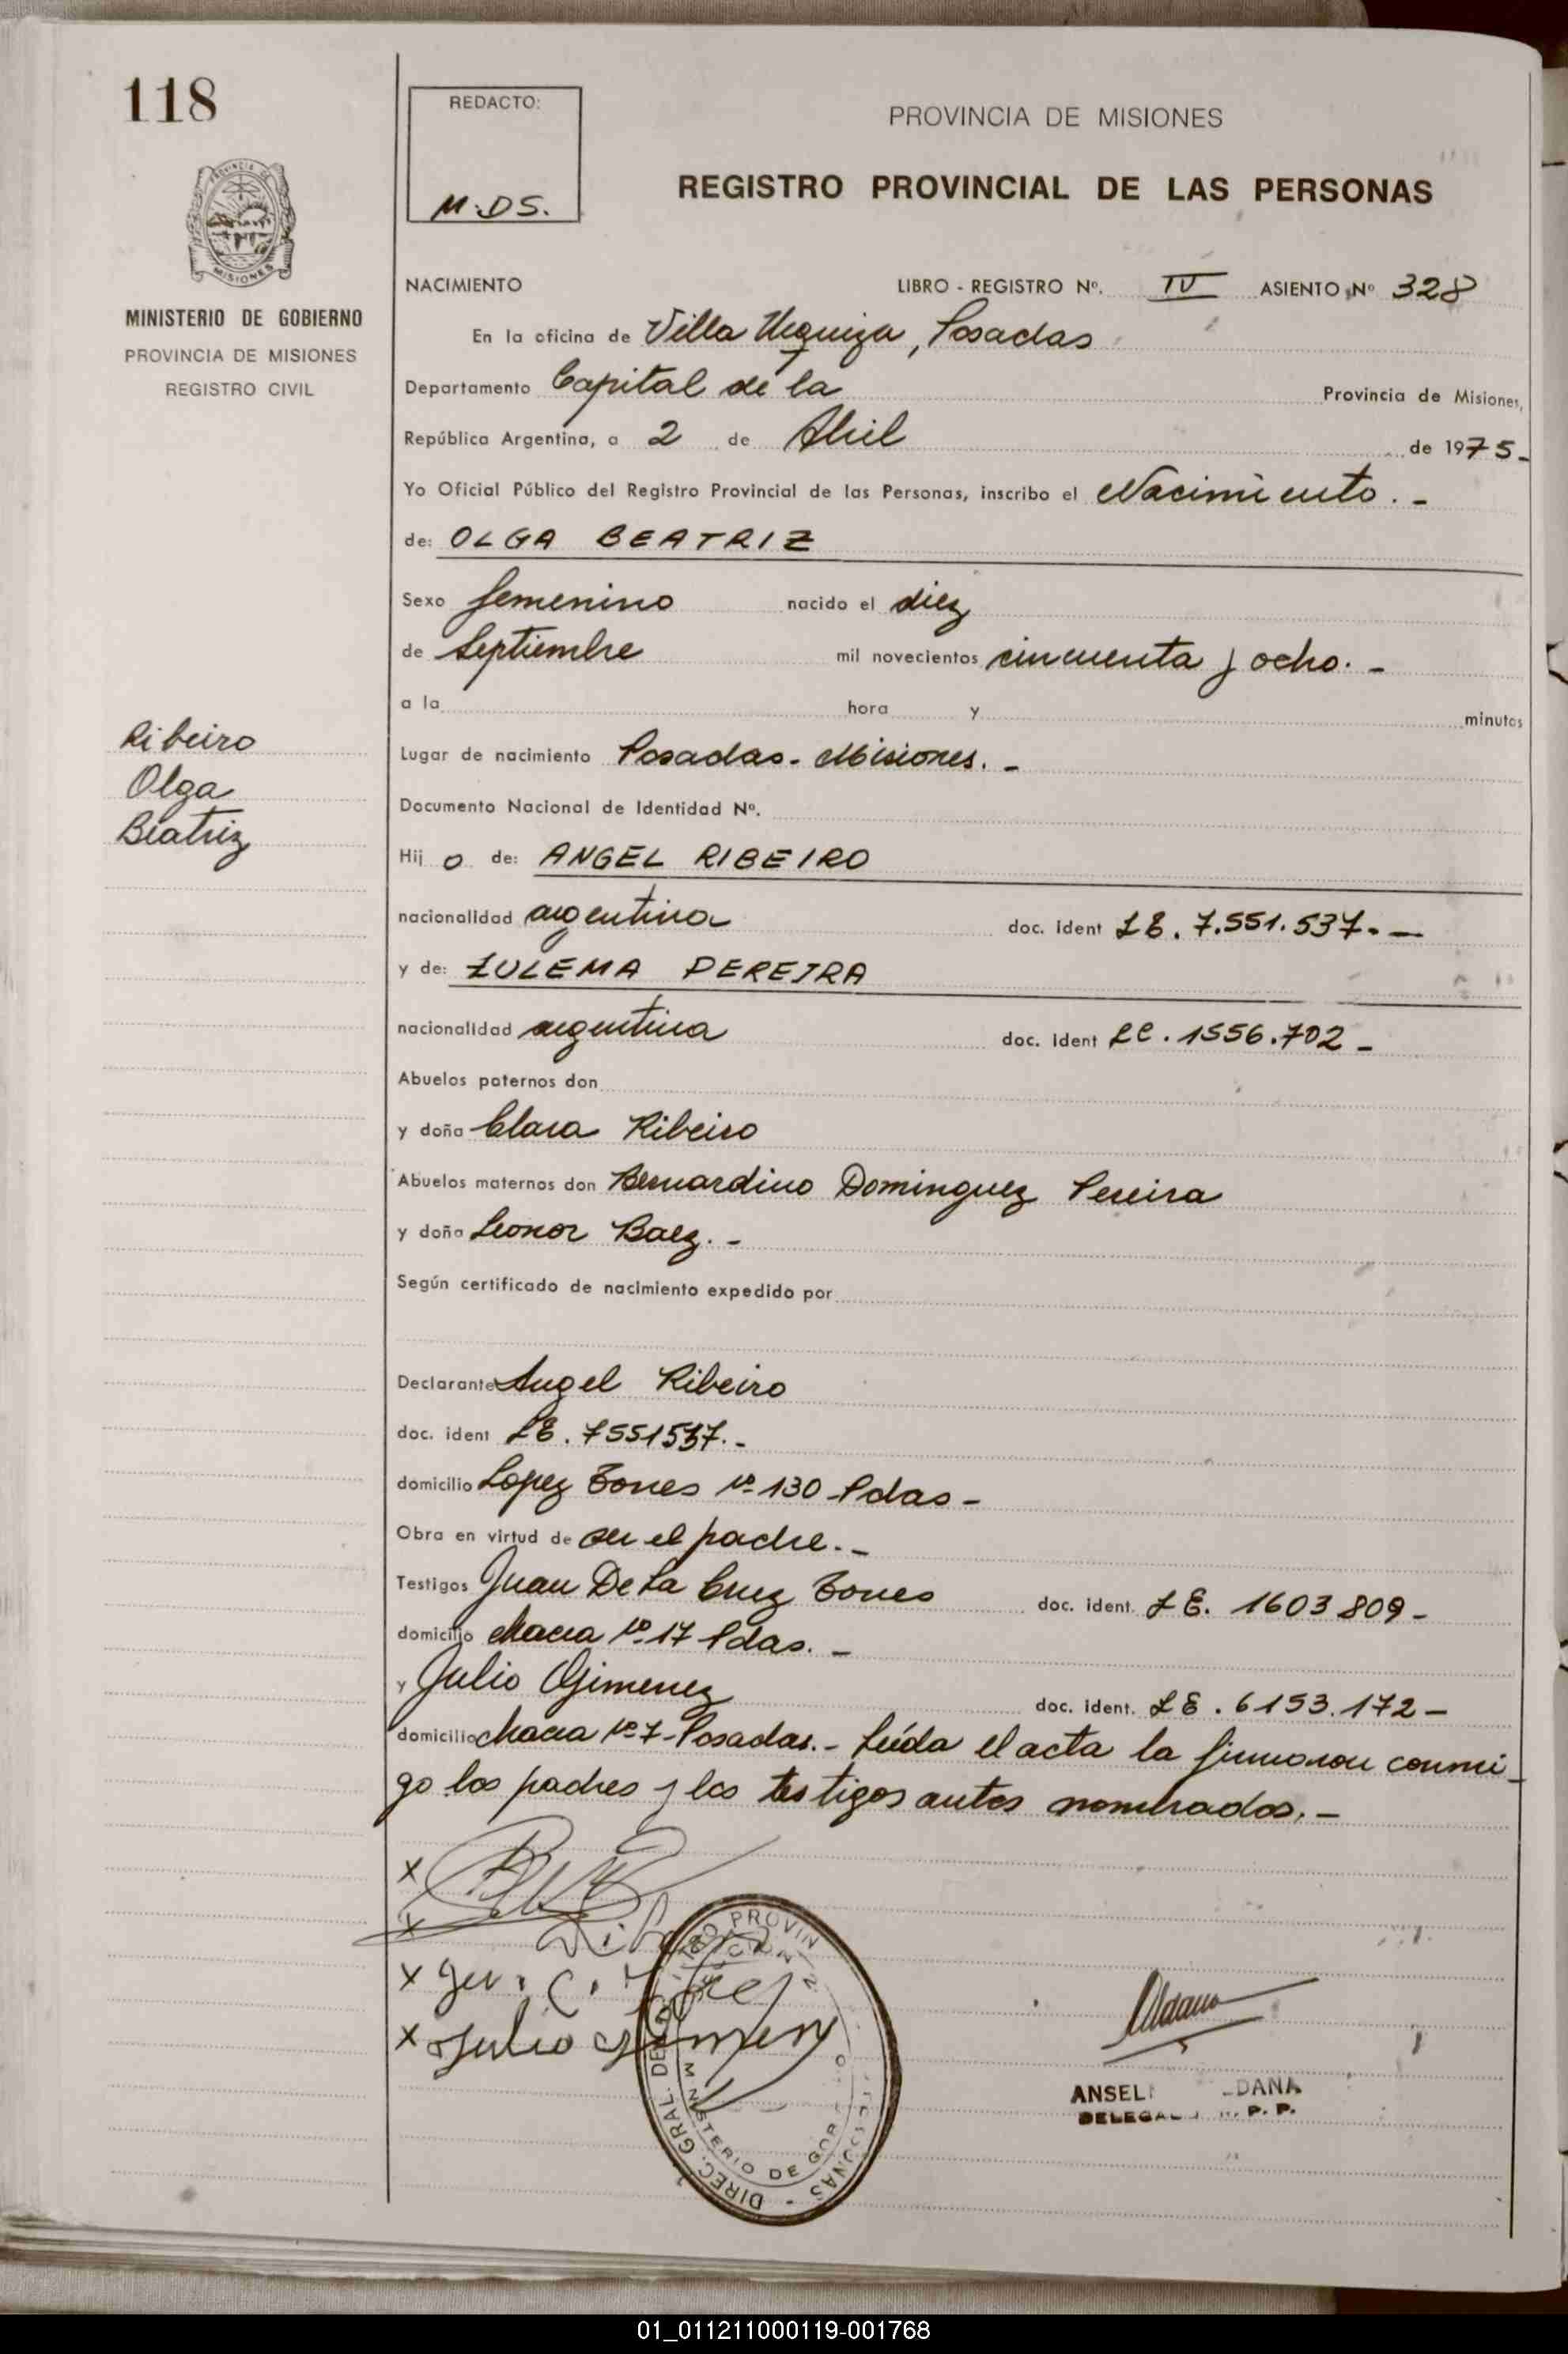 118
REDACTO:
M.DS.
PROVINCIA DE MISIONES
REGISTRO PROVINCIAL DE LAS PERSONAS
MISIONES
MINISTERIO DE GOBIERNO
PROVINCIA DE MISIONES
REGISTRO CIVIL
NACIMIENTO LIBRO - REGISTRO Nº. IV ASIENTO Nº 328
En la oficina de Villa Urquiza, Posadas
Departamento Capital de la Provincia de Misiones,
República Argentina, a 2 de Abril de 1975-
Yo Oficial Público del Registro Provincial de las Personas, inscribo el Nacimiento.-
de: OLGA BEATRIZ
Sexo femenino nacido el diez
de Septiembre mil novecientos cincuenta y ocho.-
a la hora y minutos
Ribeiro
Olga
Beatriz
Lugar de nacimiento Posadas-Misiones.-
Documento Nacional de Identidad Nº.
Hij o de: ANGEL RIBEIRO
nacionalidad argentina doc. ident LE. 7.551.537.-
y de: ZULEMA PEREIRA
nacionalidad argentina doc. ident LC. 1556.702-
Abuelos paternos don
y doña Clara Ribeiro
Abuelos maternos don Bernardino Dominguez Pereira
y doña Leonor Baez.-
Según certificado de nacimiento expedido por
Declarante Angel Ribeiro
doc. ident LE. 7551537.-
domicilio Lopez Torres Nº 130 Pdas-
Obra en virtud de ser el padre.-
Testigos Juan De La Cruz Torres doc. ident. LE. 1603809-
domicilio Chacra Nº 17 Pdas.-
y Julio Gimenez doc. ident. LE. 6153.172-
domicilio Chacra Nº 7-Posadas.- Leída el acta la firmaron conmi-
go los padres y los testigos antes nombrados.-
x
x
x
x Julio
DIREC. GRAL. DEL PROVIN
MINISTERIO DE GOB
Aldana
ANSEL DANA
DELEGA P. P.
01_011211000119-001768